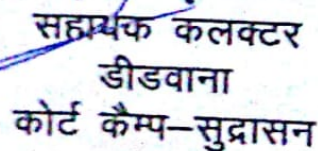 सहायक कलक्टर
डीडवाना
कोर्ट कैम्प–सुद्रासन